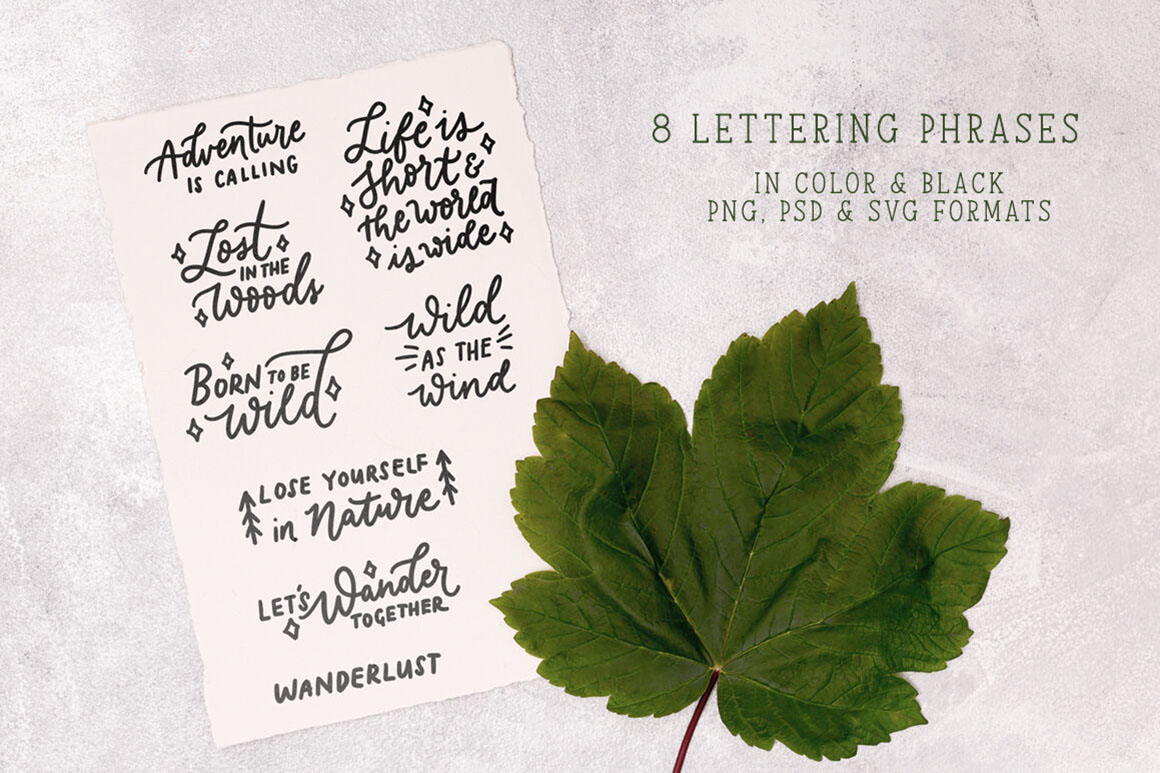 Adventure
IS CALLING
Life is
short &
the world
is wide
Lost
IN THE
Woods
Wild
AS THE
Wind
BORN TO BE
Wild
LOSE YOURSELF
in Nature
LET'S Wander
TOGETHER
WANDERLUST
8 LETTERING PHRASES
IN COLOR & BLACK
PNG, PSD & SVG FORMATS